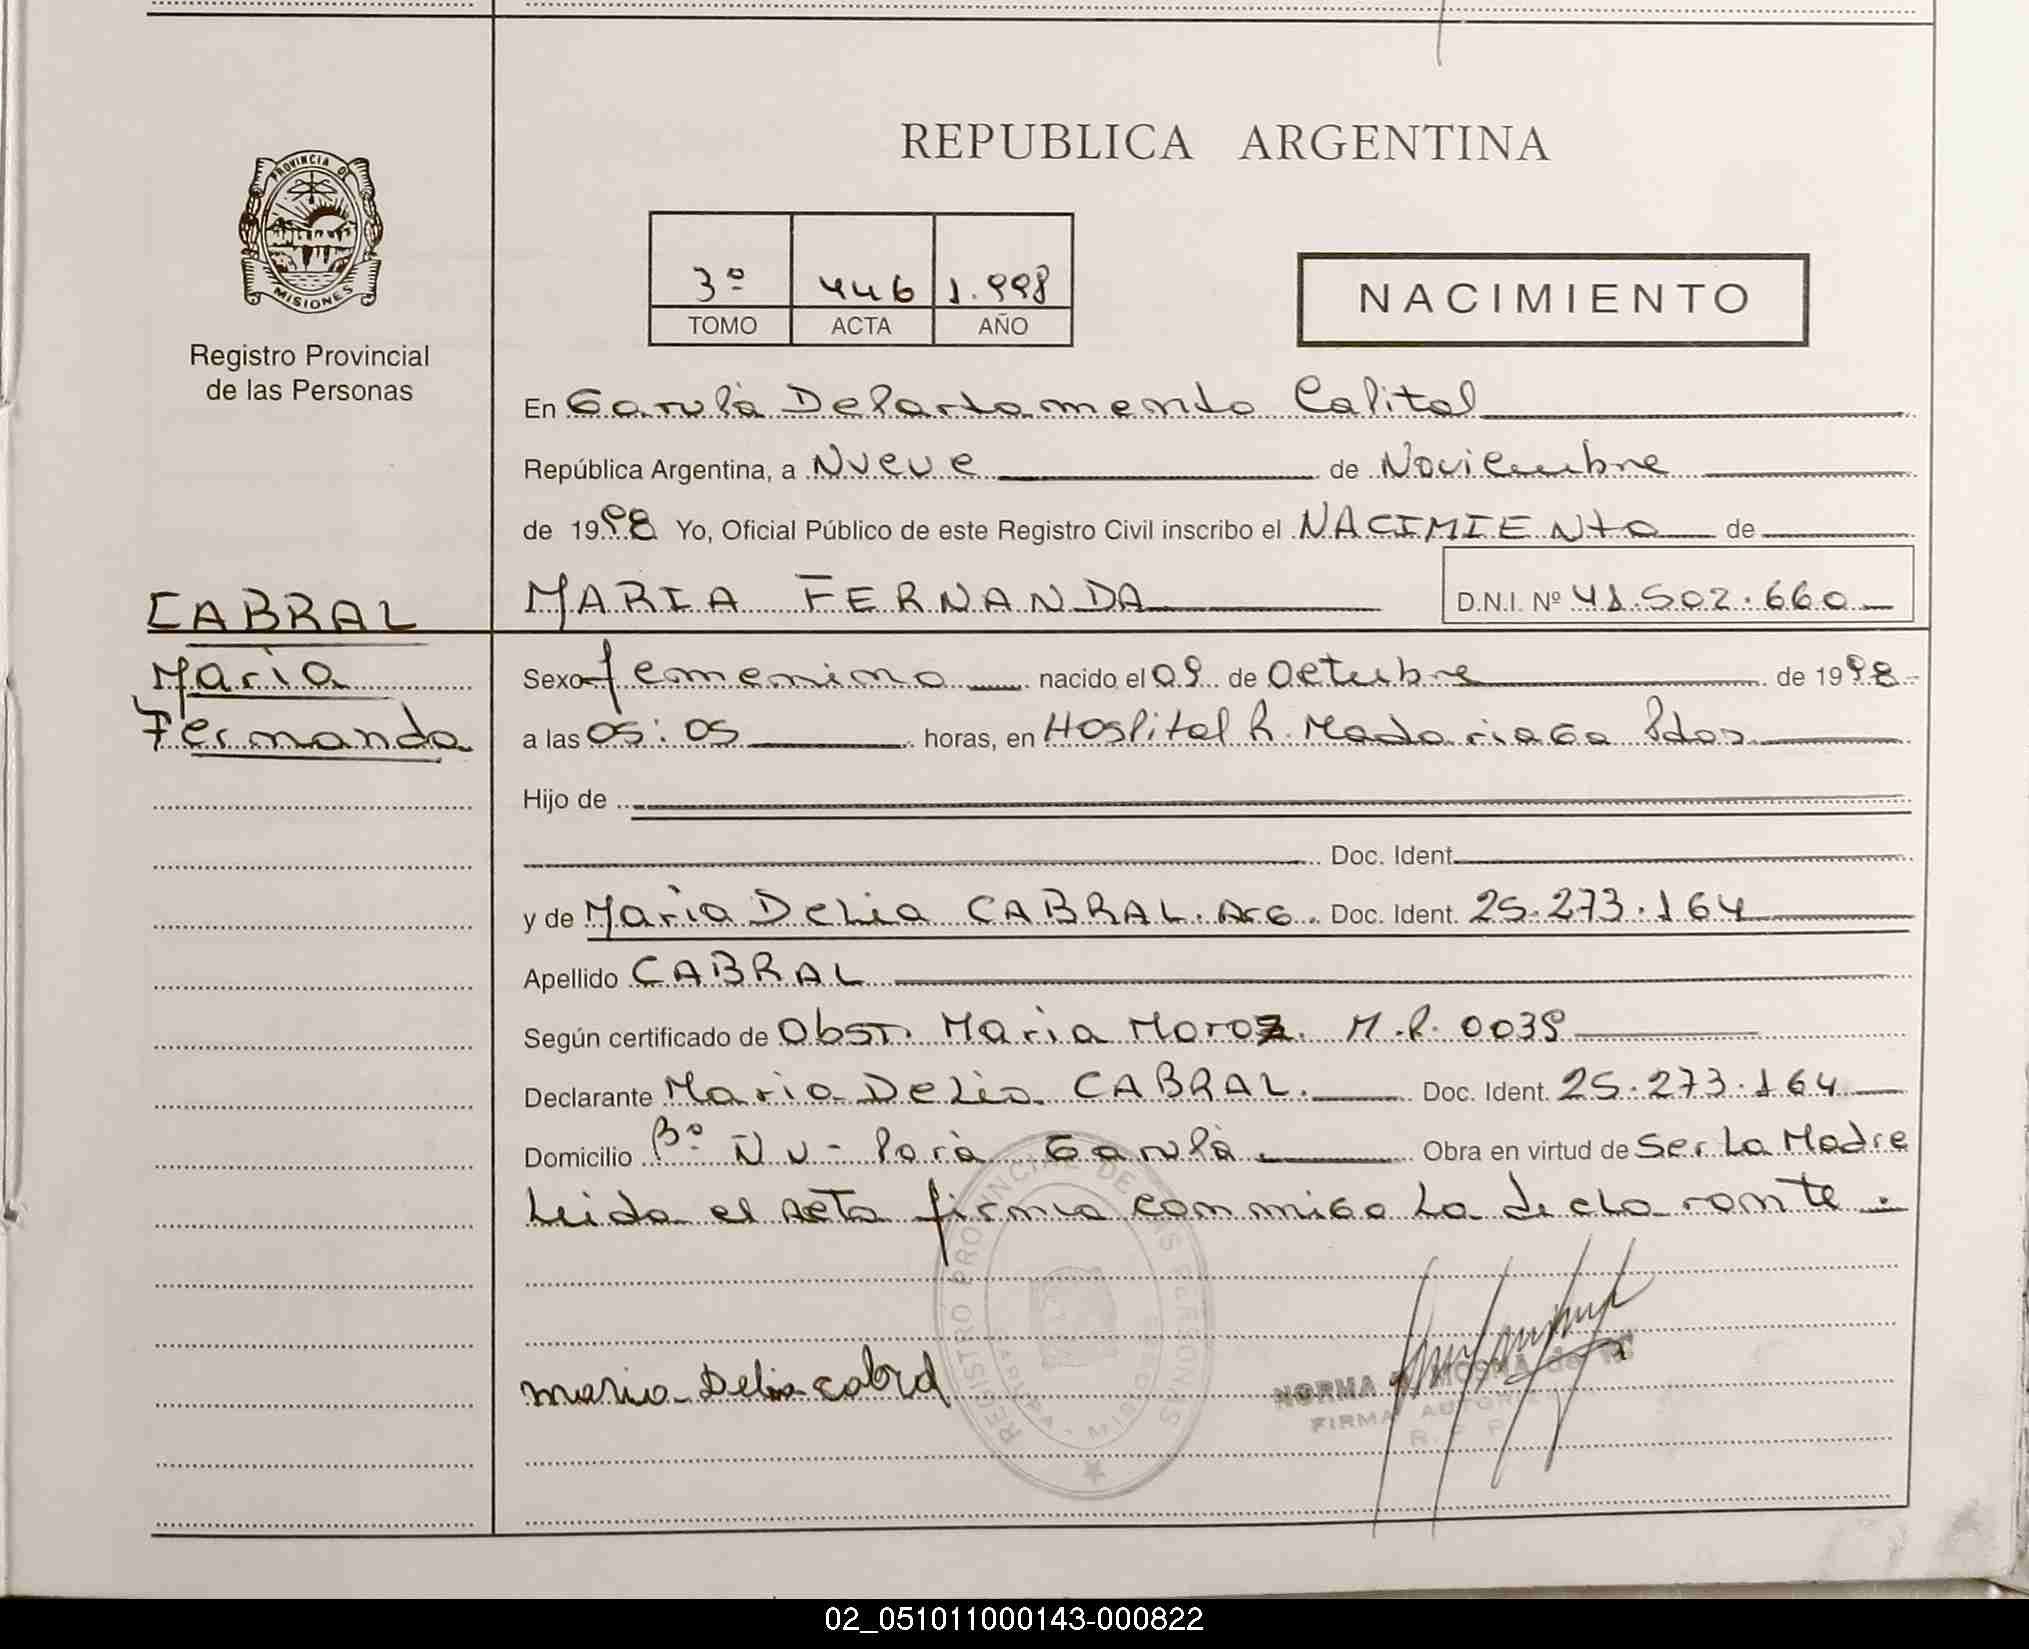 REPUBLICA ARGENTINA
PROVINCIA DE
MISIONES
Registro Provincial
de las Personas
3º 446 1.998
TOMO ACTA AÑO
NACIMIENTO
En Garupà Departamento Capital
República Argentina, a Nueve de Noviembre
de 1998 Yo, Oficial Público de este Registro Civil inscribo el NACIMIENto de
CABRAL
Maria
Fernanda
MARIA FERNANDA D.N.I. Nº 41.502.660
Sexo femenino nacido el 09 de Octubre de 1998
a las 05:05 horas, en Hospital R. Madariaga Pdas
Hijo de
Doc. Ident.
y de Maria Delia CABRAL. Arg. Doc. Ident. 25.273.164
Apellido CABRAL
Según certificado de Obst. Maria Moroz. M.P. 0039
Declarante Maria Delia CABRAL. Doc. Ident. 25.273.164
Domicilio Bº Ñu-Porà Garupà Obra en virtud de Ser La Madre
Leida el acta firma conmigo La declarante.
REGISTRO PROVINCIAL DE LAS PERSONAS
Maria Delia Cabral
NORMA
FIRMA AUTORIZ
R. P. P.
02_051011000143-000822